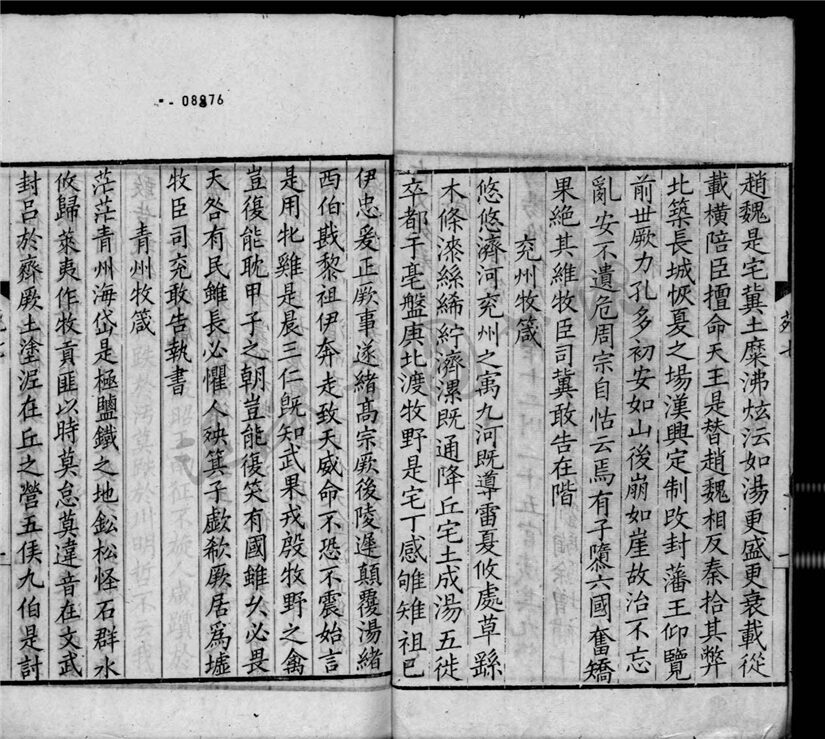 趙魏是宅冀土糜沸炫沄如湯更盛更衰載從
載橫陪臣擅命天王是替趙魏相反秦拾其弊
北築長城恢夏之場漢興定制改封藩王仰覽
前世厥力孔多初安如山後崩如崖故治不忘
亂安不遺危周宗自怙云焉有子隳六國奮矯
果絕其維牧臣司冀敢告在階
兗州牧箴
悠悠濟河兗州之寓九河既導雷夏攸處草繇
木條漆絲絺紵濟漯既通降丘宅土成湯五徙
卒都于亳盤庚北渡牧野是宅丁感雊雉祖己
伊忠爰正厥事遂緒高宗厥後陵遲顛覆湯緒
西伯戡黎祖伊奔走致天威命不恐不震始言
是用牝雞是晨三仁旣知武果戎殷牧野之禽
豈復能耽甲子之朝豈能復笑有國雖久必畏
天咎有民雖長必懼人殃箕子歔欷厥居爲墟
牧臣司兗敢告執書
青州牧箴
茫茫青州海岱是極鹽鐵之地鈆松怪石群水
攸歸萊夷作牧貢匪以時莫怠莫違音在文武
封呂於齊厥土塗泥在丘之營五侯九伯是討
08876